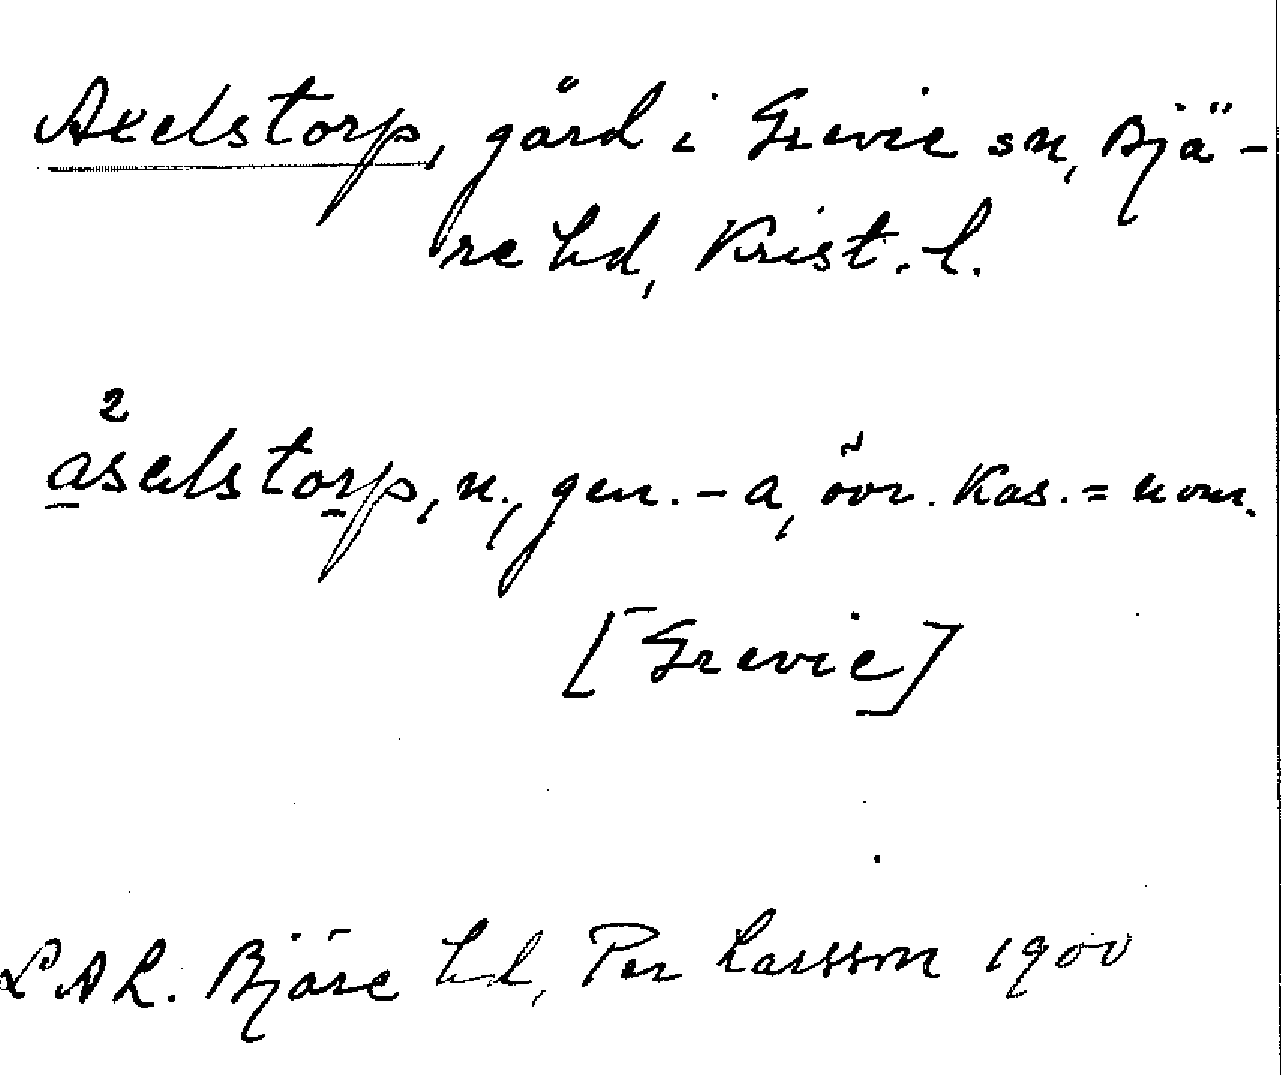 Axelstorp, gård i Grevie sn, Bjä-
re hd, Krist. l.
2
aselstorp, n., gen. -a, övr. Kas. = nom.
[Grevie]
LAL. Bjäre hd, Per Larsson 1900